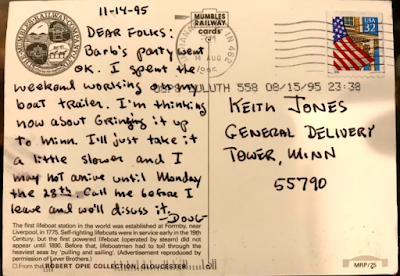 11-14-95
DEAR FOLKS:
Barb's party went
OK. I spent the
weekend working on my
boat trailer. I'm thinking
now about bringing it up
to Minn. I'll just take it
a little slower and I
may not arrive until Monday
the 28th. Call me before I
leave and we'll discuss it.
-DOUG-
The first lifeboat station in the world was established at Formby, near
Liverpool, in 1775. Self-righting lifeboats were in service early in the 19th
Century, but the first powered lifeboat (operated by steam) did not
appear until 1890. Before this, lifeboatmen had to toil through the
heaviest seas by 'pulling and sailing'. (Advertisement reproduced by
permission of Lever Brothers.)
From the ROBERT OPIE COLLECTION, GLOUCESTER
MUMBLES
RAILWAY
cards
IN 462
14 AUG
1995
DULUTH 558 08/15/95 23:38
USA
32
KEITH JONES
GENERAL DELIVERY
TOWER, MINN
55790
MRP/25